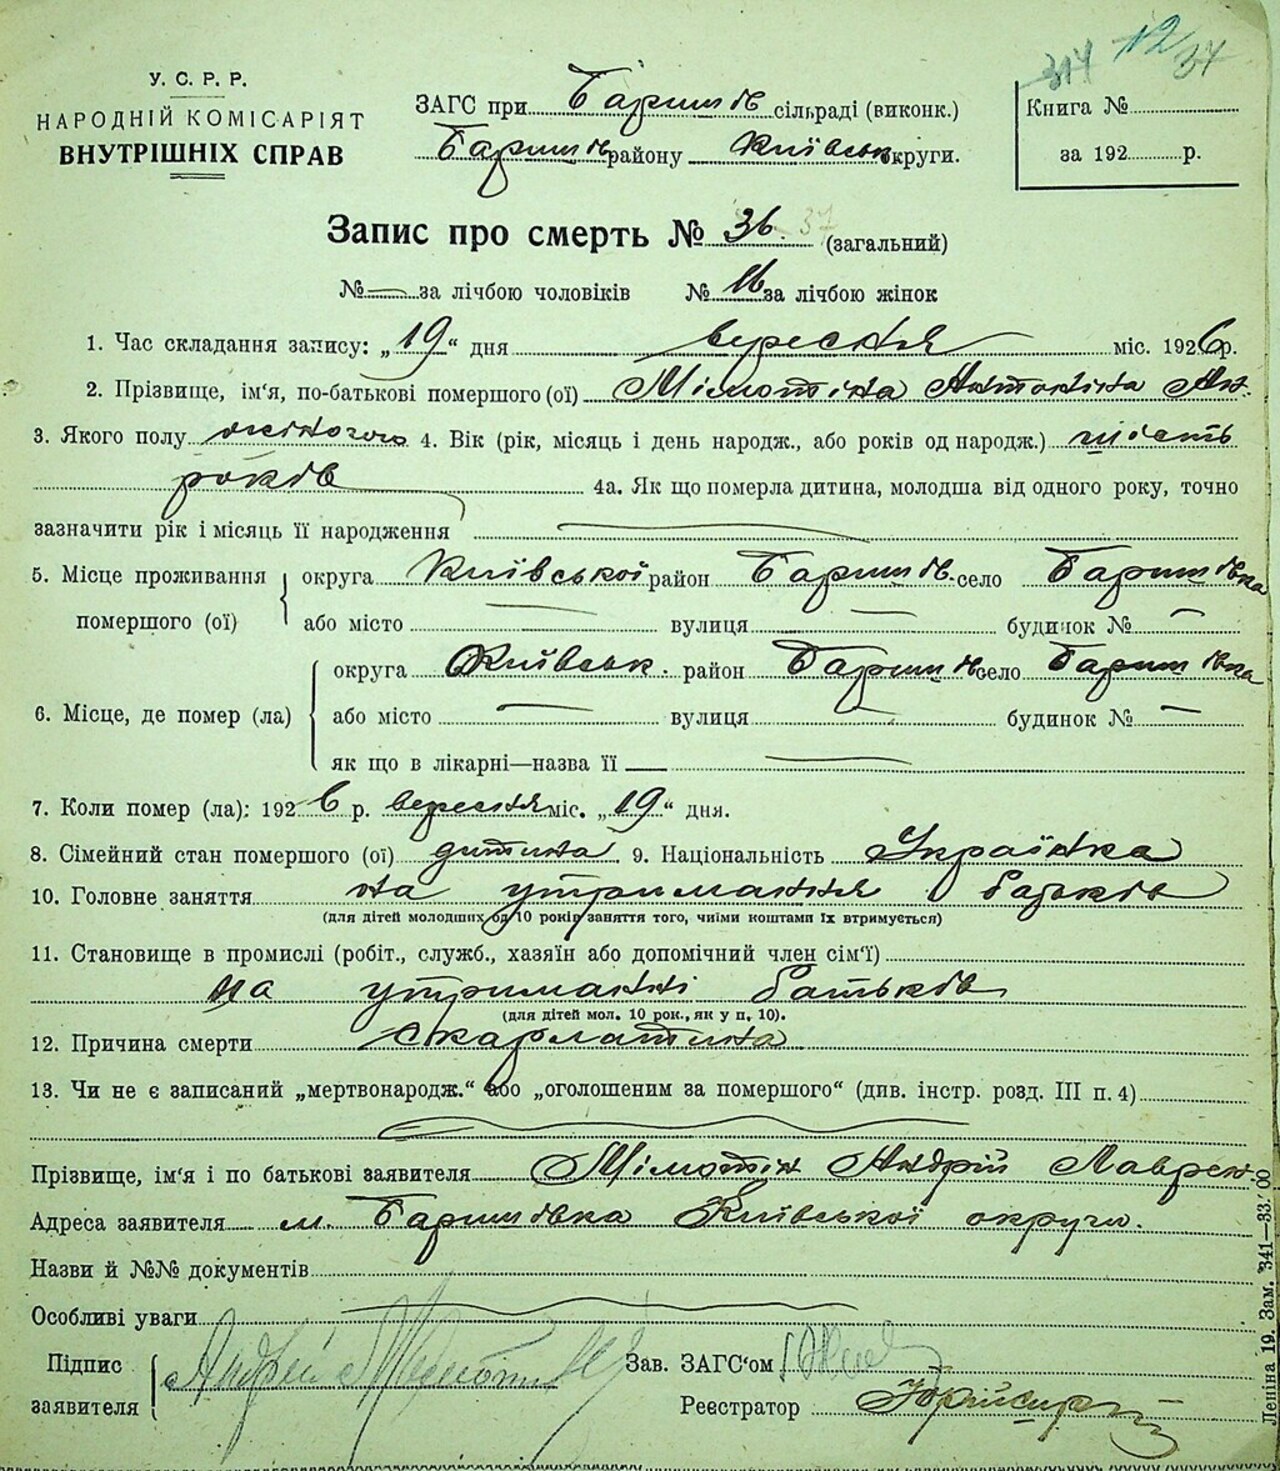 314 12 34
У. С. Р. Р.
НАРОДНІЙ КОМІСАРІЯТ
ВНУТРІШНІХ СПРАВ
ЗАГС при Баришів сільраді (виконк.)
Баришів. району Київськ округи.
Книга №
за 192 р.
Запис про смерть № 36. 37 (загальний)
№ — за лічбою чоловіків № 16 за лічбою жінок
1. Час складання запису: „19“ дня вересня міс. 1926 р.
2. Прізвище, ім‘я, по-батькові помершого (ої) Мімотіна Антоніна Ан.
3. Якого полу жіночого 4. Вік (рік, місяць і день народж., або років од народж.) шість
років 4а. Як що померла дитина, молодша від одного року, точно
зазначити рік і місяць її народження —
5. Місце проживання помершого (ої) округа Київської район Баришів. село Баришівка
або місто — вулиця — будинок № —
6. Місце, де помер (ла) округа Київськ. район Баришів село Баришівка
або місто — вулиця — будинок № —
як що в лікарні—назва її —
7. Коли помер (ла): 1926 р. вересня міс. „19“ дня.
8. Сімейний стан помершого (ої) дитина. 9. Національність Українка
10. Головне заняття на утримання батьків
(для дітей молодших од 10 років заняття того, чиїми коштами їх втримується)
11. Становище в промислі (робіт., служб., хазяїн або допомічний член сім‘ї)
на утриманні батьків
(для дітей мол. 10 рок., як у п. 10).
12. Причина смерти скарлатина
13. Чи не є записаний „мертвонародж.“ або „оголошеним за помершого“ (див. інстр. розд. III п. 4)
Прізвище, ім‘я і по батькові заявителя Мімотін Андрій Лаврен.
Адреса заявителя м. Баришівка Київської округи.
Назви й №№ документів
Особливі уваги
Підпис заявителя Андрей
Зав. ЗАГС‘ом
Реєстратор
Леніна 19. Зам. 341—33.00